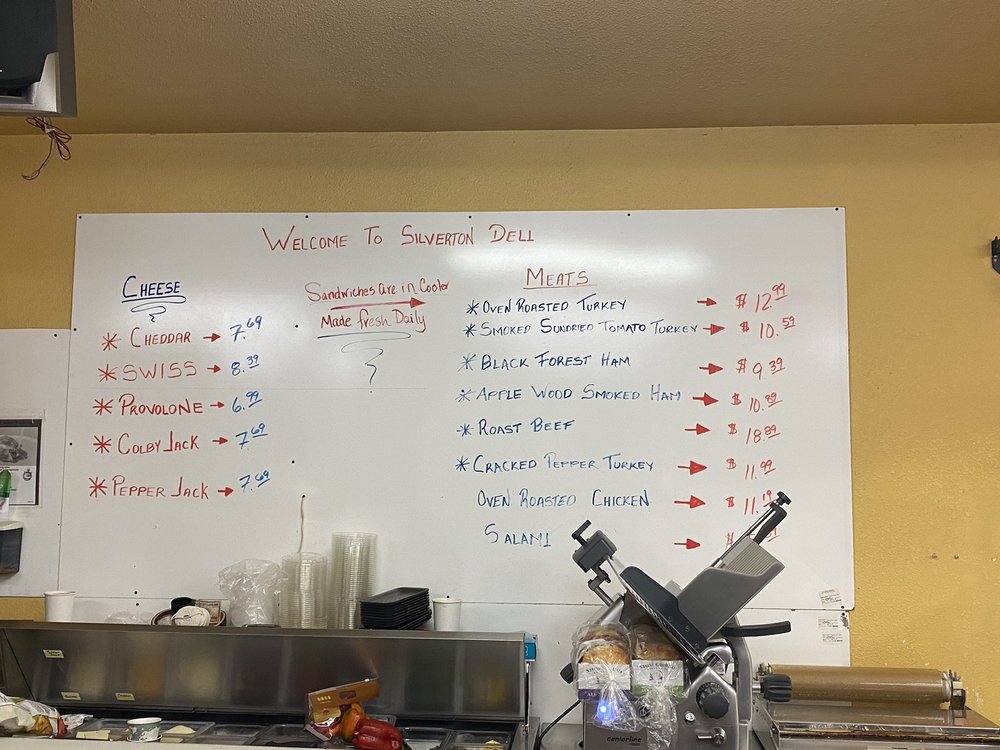 WELCOME TO SILVERTON DELI
CHEESE
* CHEDDAR → 7.69
* SWISS → 8.39
* PROVOLONE → 6.99
* COLBY JACK → 7.69
* PEPPER JACK → 7.69
Sandwiches are in Cooler
Made fresh Daily
MEATS
* OVEN ROASTED TURKEY → $ 12.99
* SMOKED SUNDRIED TOMATO TURKEY → $ 10.59
* BLACK FOREST HAM → $ 9.39
* APPLE WOOD SMOKED HAM → $ 10.89
* ROAST BEEF → $ 18.89
* CRACKED PEPPER TURKEY → $ 11.99
OVEN ROASTED CHICKEN → $ 11.19
SALAMI → $
centerline